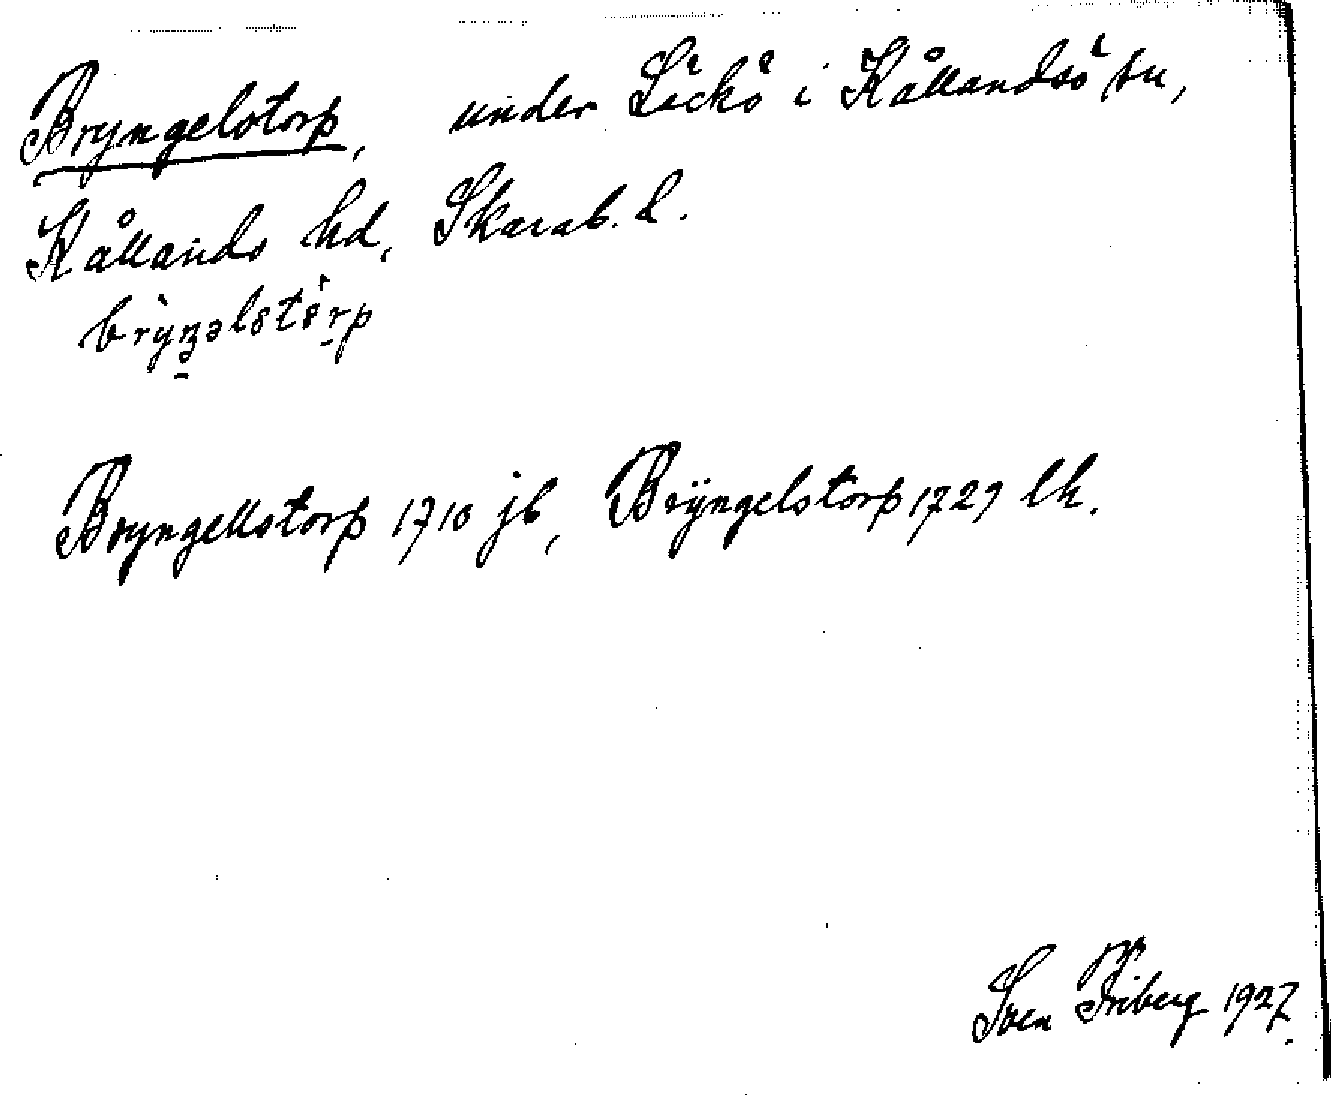 Bryngelstorp, under Läckö i Kållandsö sn,
Kållands hd, Skarab. l.
brỳŋəlstå̀rp
Bryngellstorp 1710 jb, Brÿngelstorp 1727 lh.
Sven Friberg 1927.